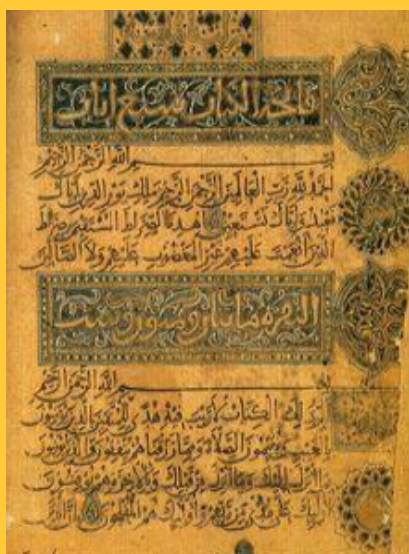 فاتحة الكتاب سبع ايات
بسم الله الرحمن الرحيم
الحمد لله رب العالمين الرحمن الرحيم ملك يوم الدين اياك
نعبد واياك نستعين اهدنا الصراط المستقيم صراط
الذين انعمت عليهم غير المغضوب عليهم ولا الضالين
البقرة مايتان وست
بسم الله الرحمن الرحيم
ذلك الكتاب لا ريب فيه هدى للمتقين الذين يؤمنون
بالغيب ويقيمون الصلاة ومما رزقناهم ينفقون والذين يؤمنون
بما انزل اليك وما انزل من قبلك وبالاخرة هم يوقنون
اولئك على هدى من ربهم واولئك هم المفلحون